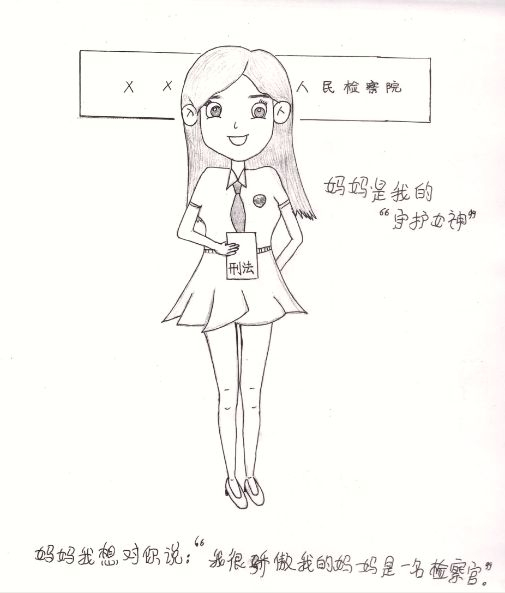 X X 人民检察院
妈妈是我的
“守护女神”
刑法
妈妈我想对你说：“我很骄傲我的妈妈是一名检察官”。